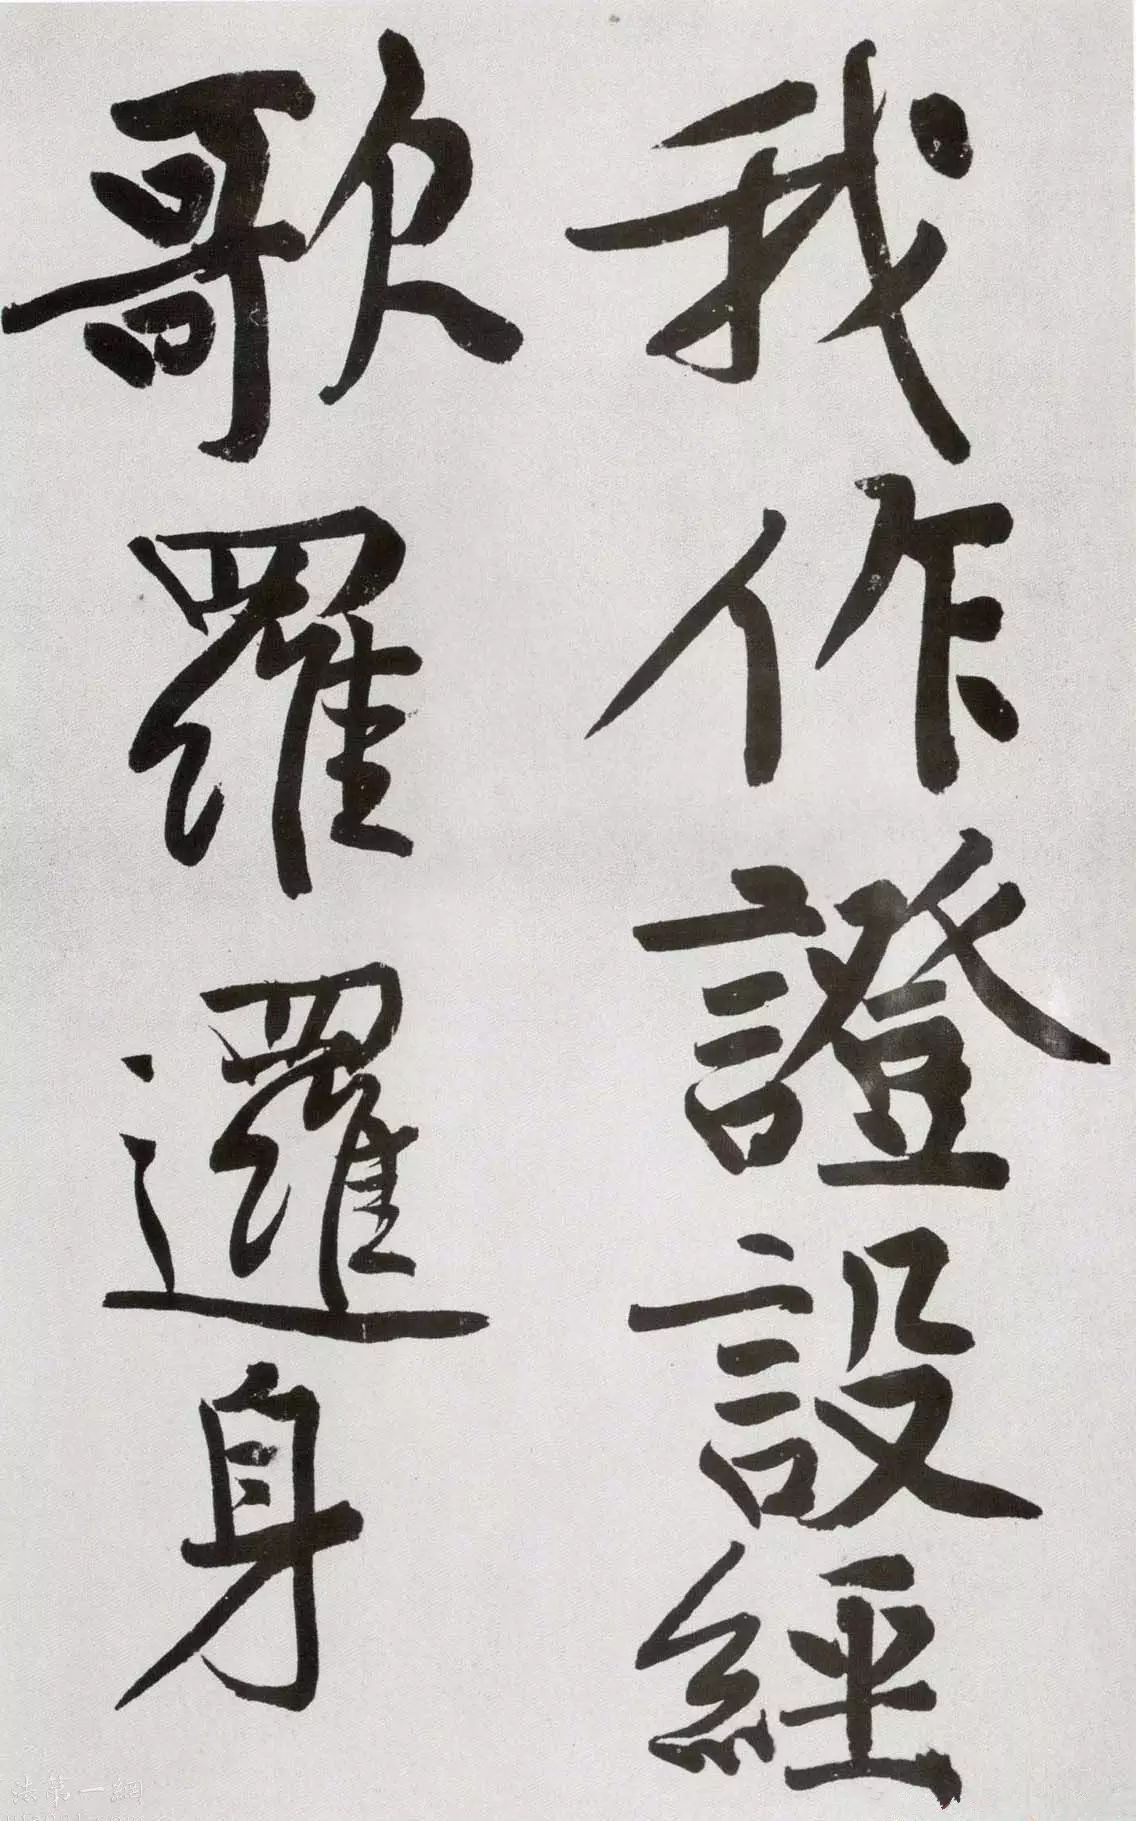 我作證設經
歌羅邏身
法第一網